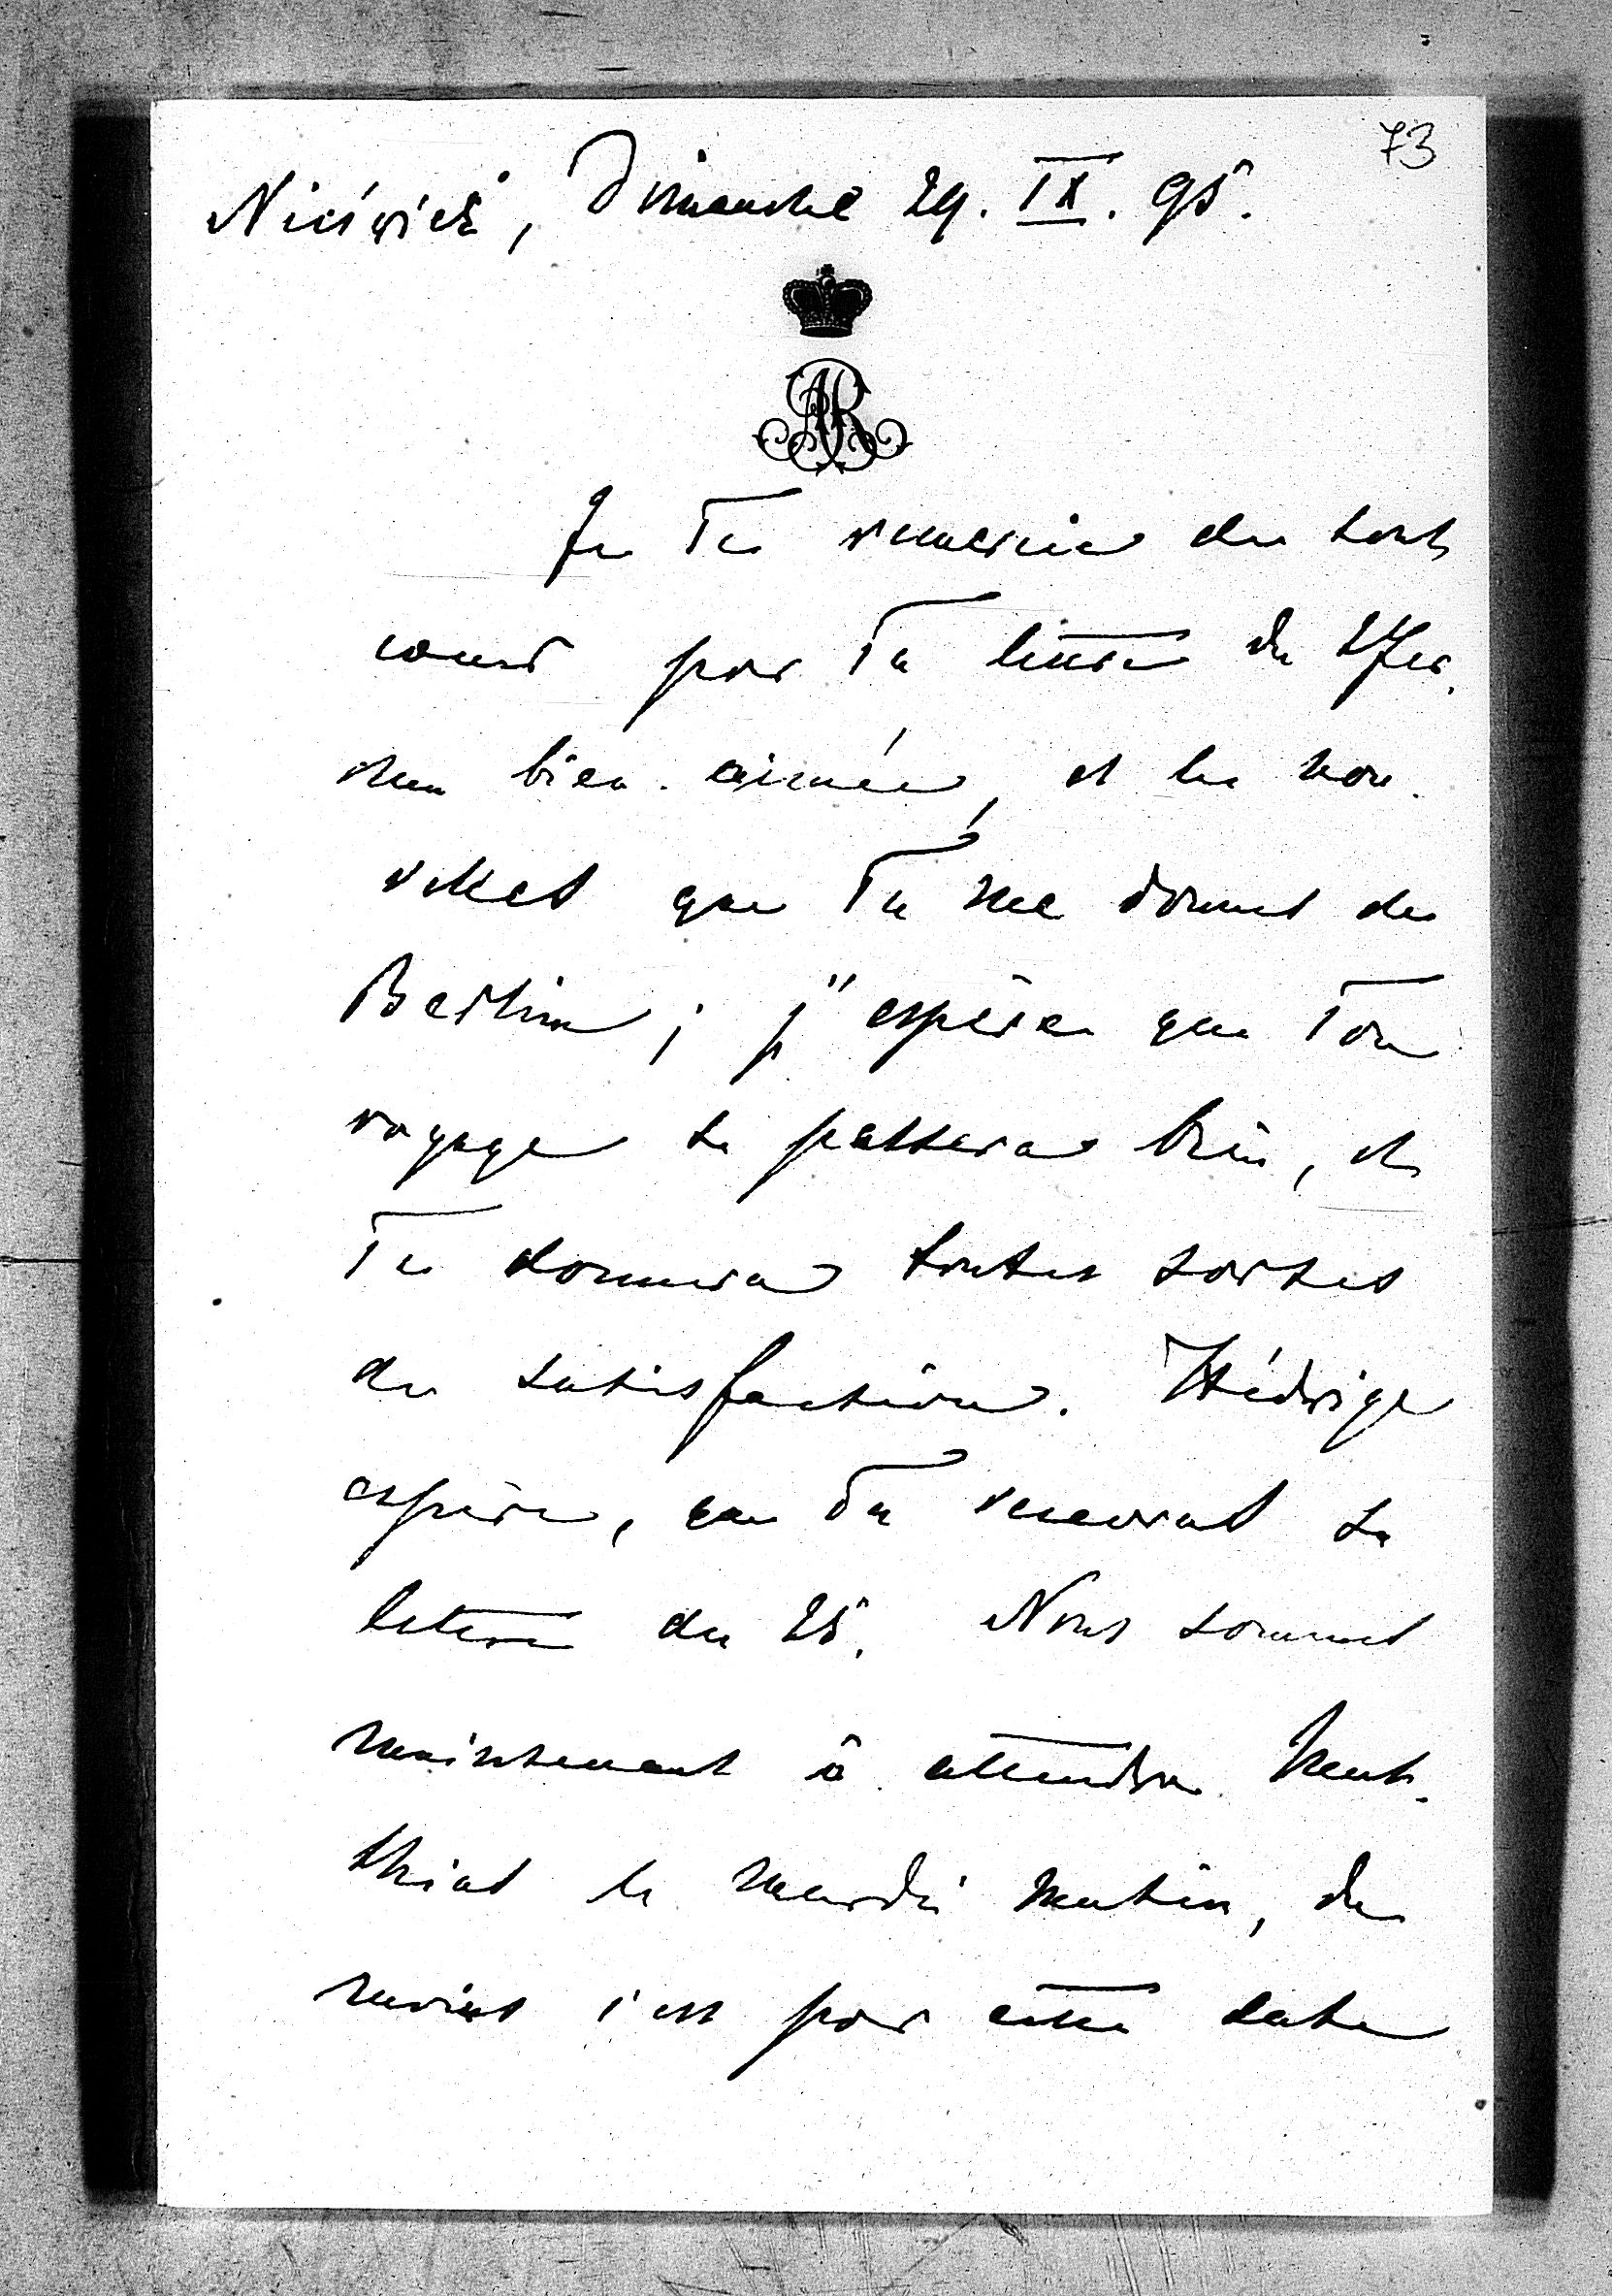 73
Nieśwież, Dimanche 29. IX. 95.
AR
Je Te remercie de tout
coeur por Ta lettre du
ma bien-aimée, et les nou-
velles que Tu me donnes de
Berlin; j'espère que Ton
voyage se passera bien, et
Te donnera toutes sortes
de satisfactions. Hédwige
espère, que Tu recevras sa
lettre du 25. Nous sommes
maintenant à attendre Mat-
thias le mardi matin, du
moins c'est por cette date